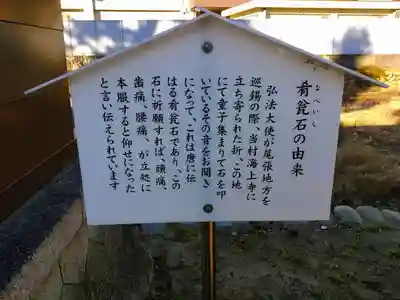 肴瓮石の由来
なべいし
弘法大使が尾張地方を
巡錫の際、当村海上寺に
立ち寄られた折、この地
にて童子集まりて石を叩
いているその音をお聞き
になって、これは唐に伝
はる肴瓮石であり、この
石に祈願すれば、頭痛、
歯痛、腰痛、が立処に
本服すると仰せになった
と言い伝えられています